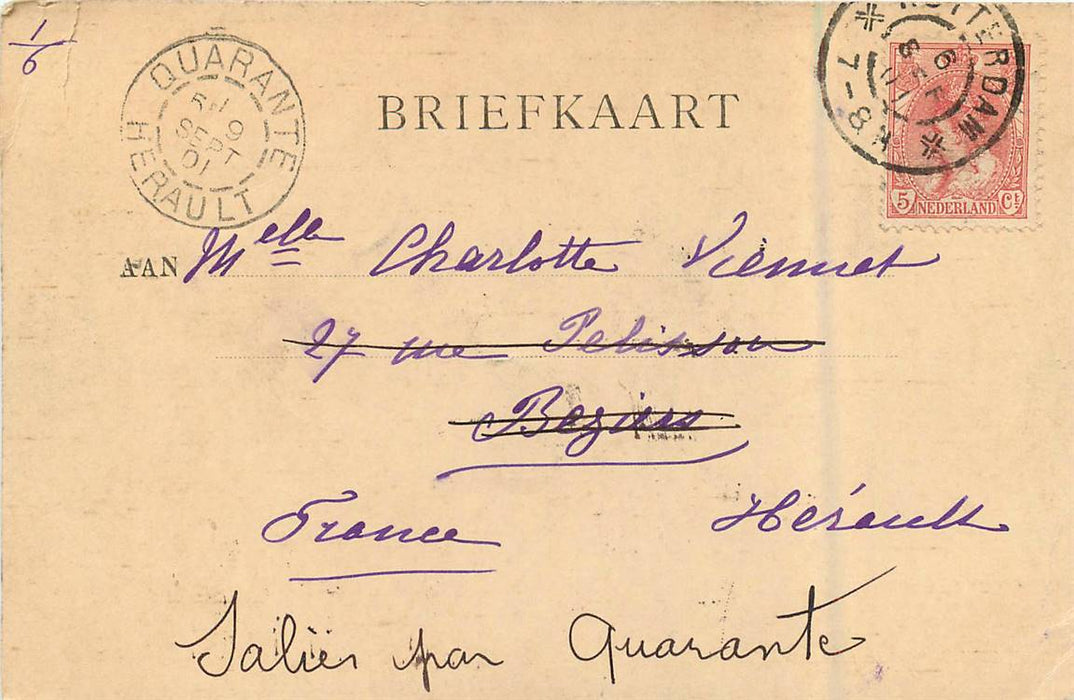 1/6
QUARANTE
9
SEPT
01
HERAULT
BRIEFKAART
ROTTERDAM
6
SEP
01
7-8N
5 NEDERLAND CT
AAN Melle Charlotte Viennet
27 rue Pelisson
Beziers
France Hérault
Saliès par Quarante